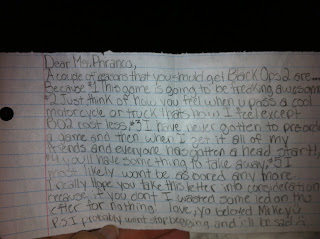 Dear Ms. Phranco,
A couple of reasons that you should get Black Ops 2 are...
because #1 This game is going to be freaking awesome
#2 Just think of how you feel when u pass a cool
motorcycle or truck thats how I feel except
BO2 cost less, #3 I have never gotten to preorder
a game and then when I get it all of my
friends and everyone has gotten a head start!,
#4 you'll have something to take away, #5 I
most likely wont be as bored any more
I really hope you take this letter into consideration
because if you don't I wasted some led on this
effer for nothing. love, yo beloved
P.S. I probably wont stop begging and i'll be sad :(